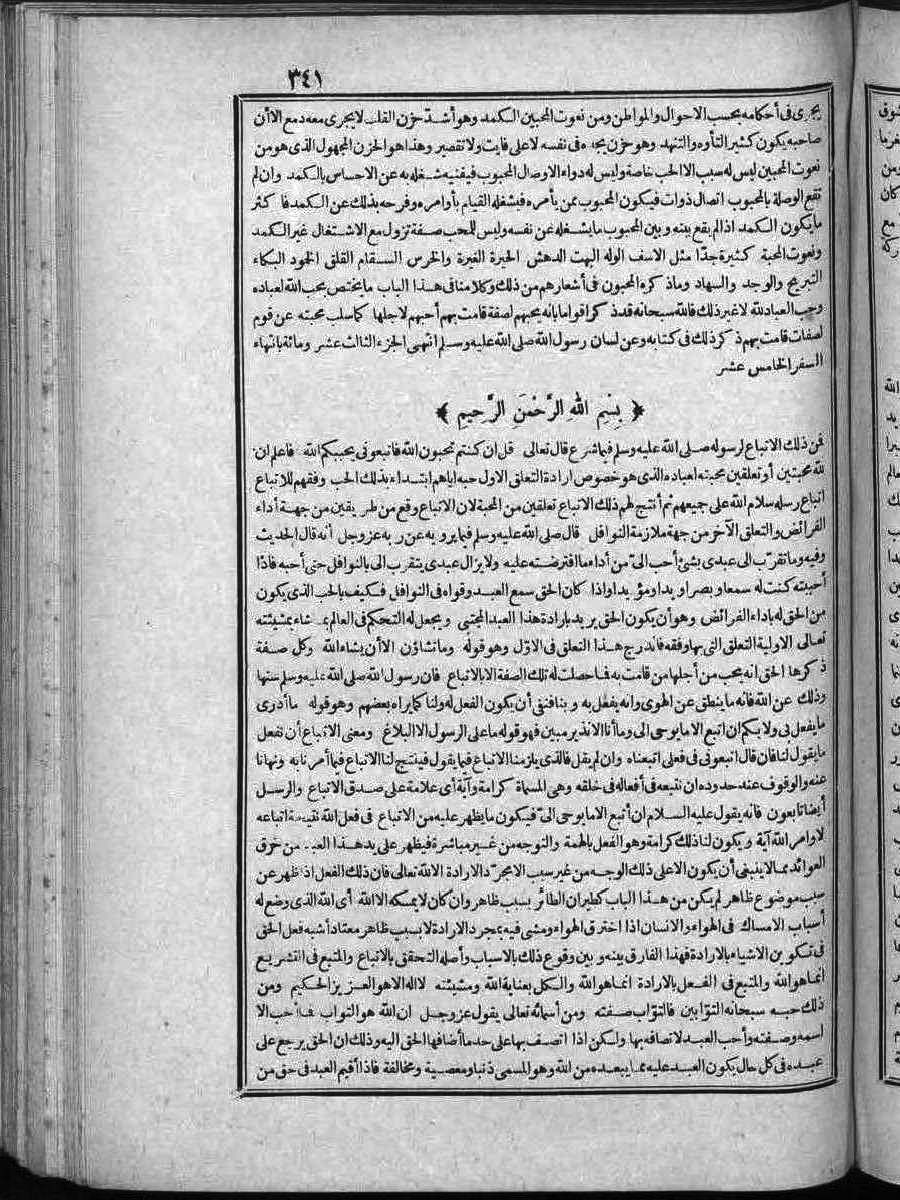 ٣٤١
يجرى فى أحكامه بحسب الاحوال والمواطن ومن نعوت المحبين الكمد وهو أشدّ حزن القلب لا يجرى معه دمع الا أن
صاحبه يكون كثير التأوه والتنهد وهو حزن يجده فى نفسه لا على فايت ولا تقصير وهذا هو الحزن المجهول الذى هو من
نعوت المحبين ليس له سبب الا الحب خاصة وليس له دواء الا وصال المحبوب فيفنيه شغله به عن الاحساس بالكمد وان لم
تقع الوصلة بالمحبوب اتصال ذوات فيكون المحبوب ممن يأمره فيشغله القيام بأوامره وفرحه بذلك عن الكمد فاكثر
ما يكون الكمد اذا لم يقع بينه وبين المحبوب ما يشغله عن نفسه وليس للمحب صفة تزول مع الاشتغال غير الكمد
ونعوت المحبة كثيرة جدّا مثل الاسف الوله البهت الدهش الحيرة الغيرة والخرس السقام القلق الخود البكاء
التبريح والوجد والسهاد وما ذكره المحبون فى أشعارهم من ذلك وكلامنا فى هذا الباب ما يختص بحب الله لعباده
وحب العباد لله لا غير ذلك فالله سبحانه قد ذكر اقواما بانه يحبهم لصفة قامت بهم أحبهم لاجلها كما سلب محبته عن قوم
لصفات قامت بهم ذكر ذلك فى كتابه وعن لسان رسول الله صلى الله عليه وسلم انتهى الجزء الثالث عشر ومائة بانتهاء
السفر الخامس عشر
﴿ بِسْمِ اللهِ الرَّحْمٰنِ الرَّحِيمِ ﴾
فمن ذلك الاتباع لرسوله صلى الله عليه وسلم فيما شرع قال تعالى قل ان كنتم تحبون الله فاتبعونى يحببكم الله فاعلم ان
لله محبتين أو تعلقين محبته لعباده الذى هو خصوص ارادة التعلق الاول حبه اياهم ابتداء بذلك الحب وفقهم للاتباع
اتباع رسله سلام الله على جميعهم ثم أنتج لهم ذلك الاتباع تعلقين من المحبة لان الاتباع وقع من طريقين من جهة أداء
الفرائض والتعلق الآخر من جهة ملازمة النوافل قال صلى الله عليه وسلم فيما يرويه عن ربه عز وجل انه قال الحديث
وفيه وما تقرّب الى عبدى بشئ أحب الىّ من أداء ما افترضته عليه ولا يزال عبدى يتقرب الى بالنوافل حتى أحبه فاذا
أحببته كنت له سمعا وبصرا ويدا ومؤيدا واذا كان الحق سمع العبد وقواه فى النوافل فكيف بالحب الذى يكون
من الحق له باداء الفرائض وهو أن يكون الحق يريد بارادة هذا العبد المجتبى ويجعل له التحكم فى العالم بما شاء بمشيئته
تعالى الاولية التعلق التى بها وفقه فاندرج هذا التعلق فى الاوّل وهو قوله وما تشاؤن الا أن يشاء الله وكل صفة
ذكرها الحق انه يحب من أجلها من قامت به فما حصلت له تلك الصفة الا بالاتباع فان رسول الله صلى الله عليه وسلم سنها
وذلك عن الله فانه ما ينطق عن الهوى وانه يفعل به وبنا فنفى أن يكون الفعل له ولنا كما يراه بعضهم وهو قوله ما أدرى
ما يفعل بى ولا بكم ان اتبع الا ما يوحى الى وما أنا الا نذير مبين فهو قوله ما على الرسول الا البلاغ ومعنى الاتباع أن نفعل
ما يقول لنا فان قال اتبعونى فى فعلى اتبعناه وان لم يقل فالذى يلزمنا الاتباع فيما يقول فينتج لنا الاتباع فيما أمرنا به ونهانا
عنه والوقوف عند حدوده ان نتبعه فى أفعاله فى خلقه وهى المسماة كرامة وآية أى علامة على صدق الاتباع والرسل
أيضا تابعون فانه يقول عليه السلام ان أتبع الا ما يوحى الىّ فيكون ما يظهر عليه من الاتباع فى فعل الله نتيجة اتباعه
لاوامر الله آية ويكون لنا ذلك كرامة وهو الفعل بالهمة والتوجه من غير مباشرة فيظهر على يد هذا العبد من خرق
العوائد مما لا ينبغى أن يكون الا على ذلك الوجه من غير سبب الا بمجرّد الارادة الا لله تعالى فان ذلك الفعل اذا ظهر عن
سبب موضوع ظاهر لم يكن من هذا الباب كطيران الطائر بسبب ظاهر وان كان لا يمسكه الا الله أى الله الذى وضع له
أسباب الامساك فى الهواء والانسان اذا اخترق الهواء ومشى فيه بمجرد الارادة لا بسبب ظاهر معتاد أشبه فعل الحق
فى تكوين الاشياء بالارادة فهذا الفارق بينه وبين وقوع ذلك بالاسباب وأصله التحقق بالاتباع والمتبع فى التشريع
انما هو الله والمتبع فى الفعل بالارادة انما هو الله والكل بعناية الله ومشيئته لا اله الا هو العزيز الحكيم ومن
ذلك حبه سبحانه التوّابين فالتوّاب صفته ومن أسمائه تعالى يقول عز وجل ان الله هو التواب فما أحب الا
اسمه وصفته وأحب العبد لاتصافه بها ولكن اذا اتصف بها على حد ما أضافها الحق اليه وذلك ان الحق يرجع على
عبده فى كل حال يكون العبد عليه مما يبعده من الله وهو المسمى ذنبا ومعصية ومخالفة فاذا أقيم العبد فى حق من